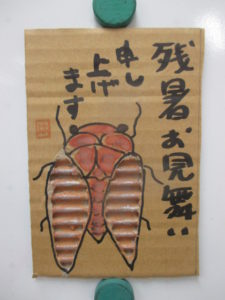 残暑お見舞い
申し
上げ
ます